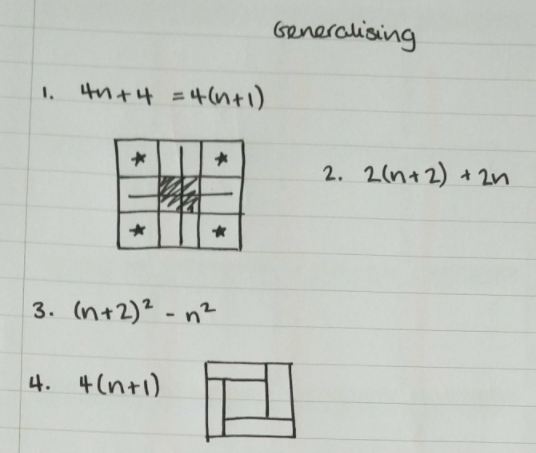 Generalising
1. 4n+4 = 4(n+1)
2. 2(n+2) + 2n
3. (n+2)² - n²
4. 4(n+1)